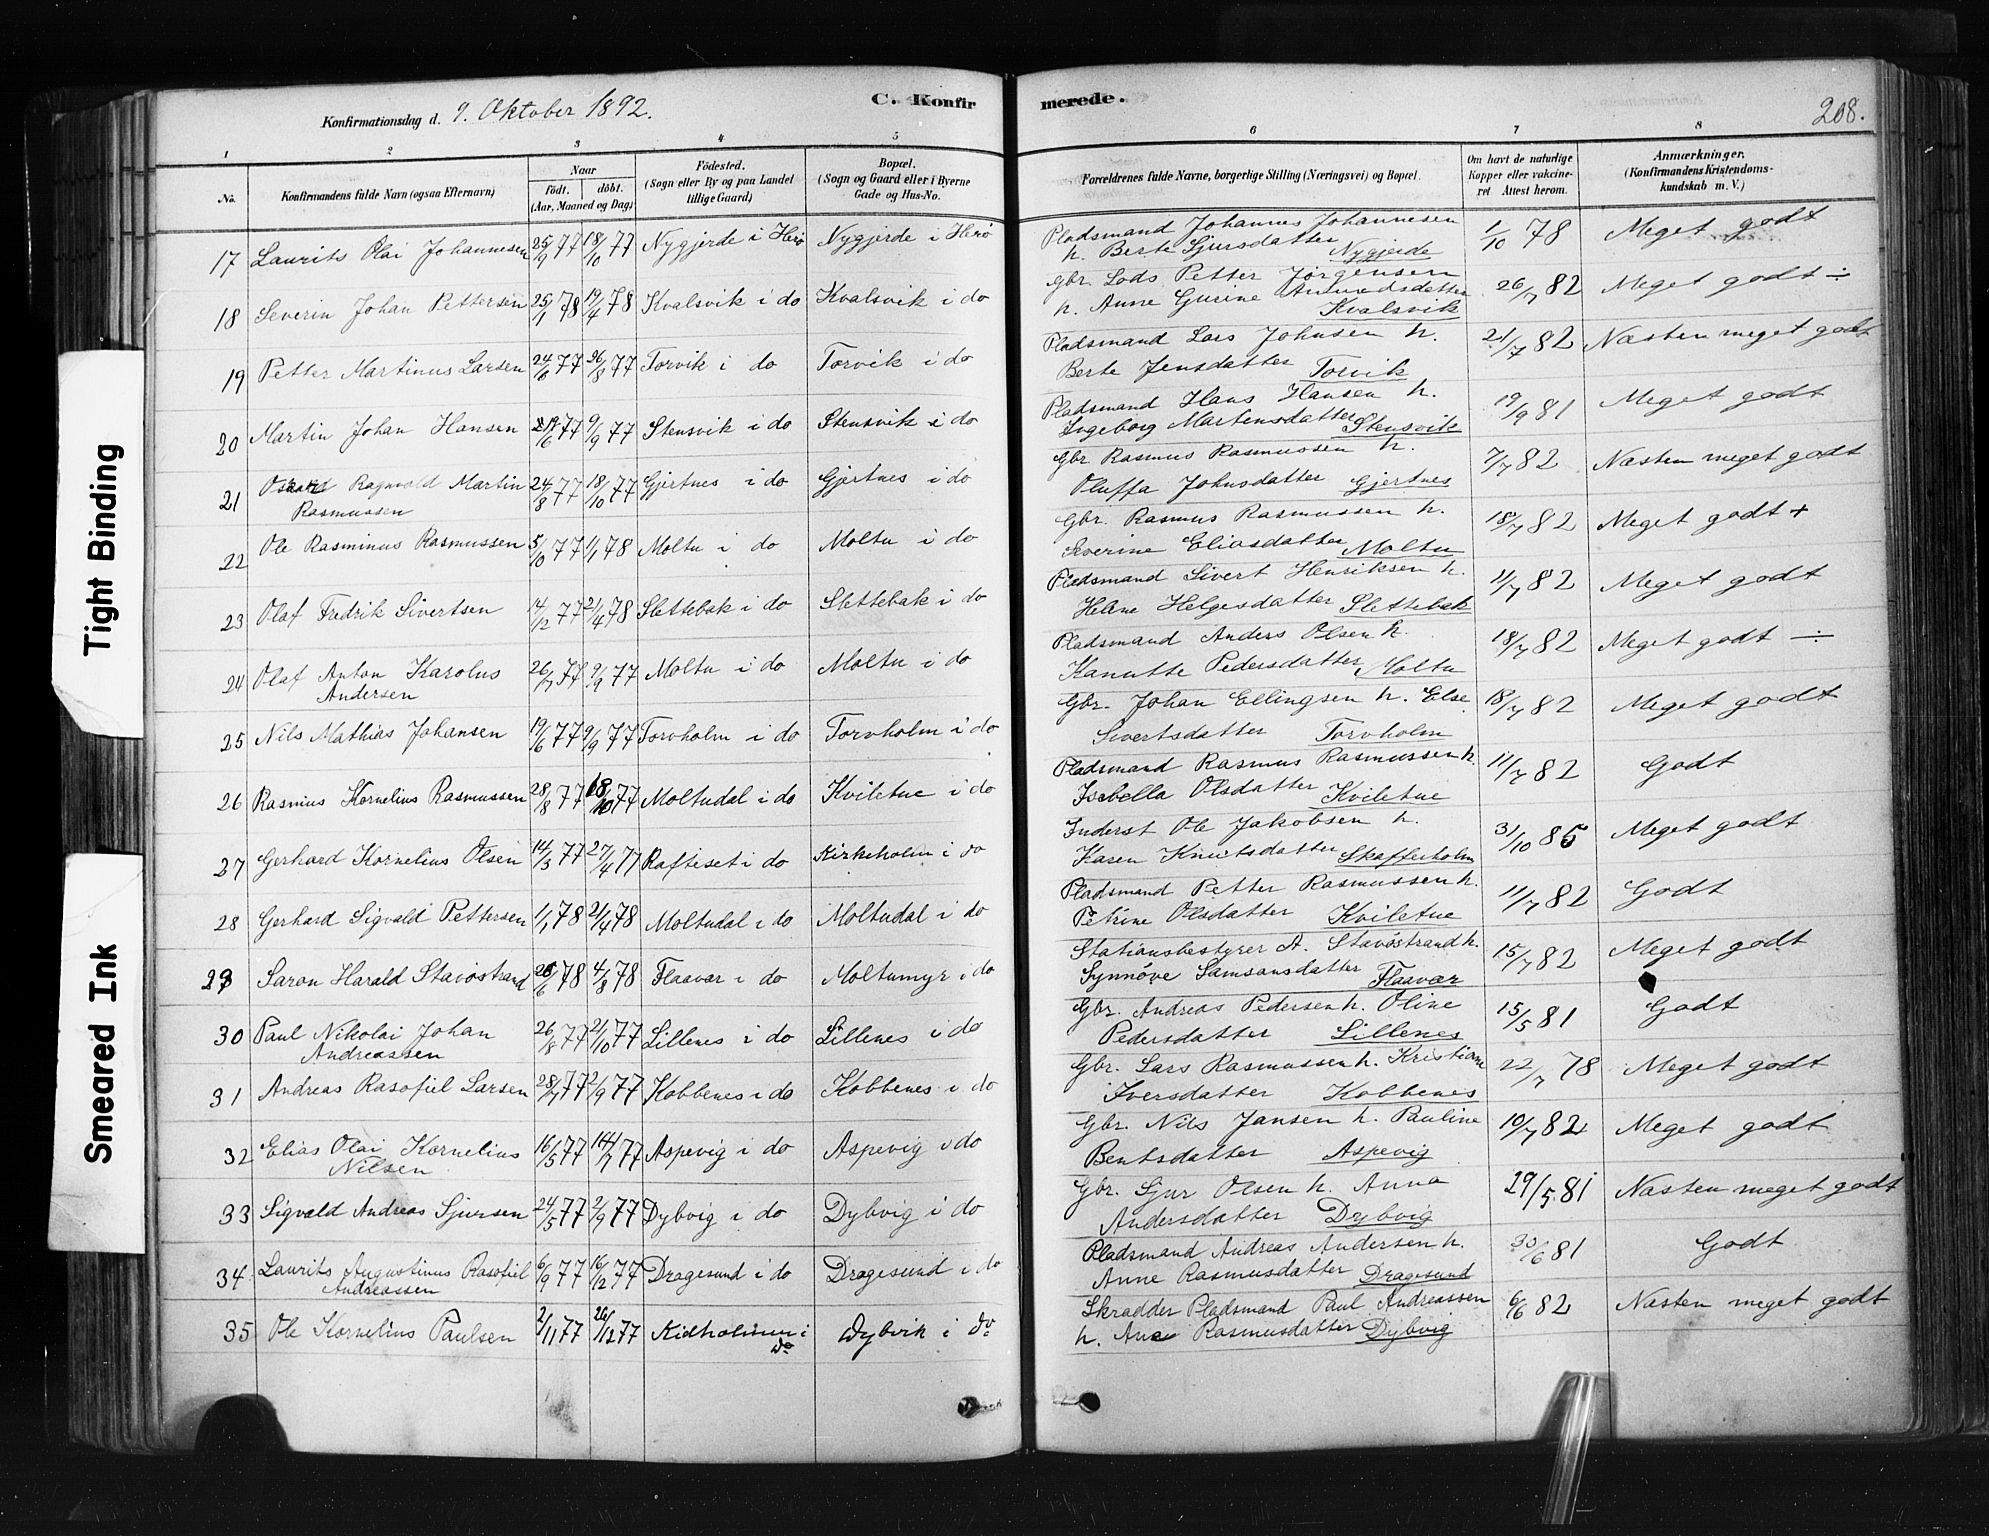 Tight Binding
Smeared Ink
C. Konfirmerede.
208.
Konfirmationsdag d. 9. Oktober 1892.
1 2 3 4 5 6 7 8
No. Konfirmandens fulde Navn (ogsaa Efternavn) Naar födt. döbt. (Aar, Maaned og Dag) Födested. (Sogn eller By og paa Landet tillige Gaard) Bopæl. (Sogn og Gaard eller i Byerne Gade og Hus-No. Forældrenes fulde Navne, borgerlige Stilling (Næringsvei) og Bopæl. Om havt de naturlige Kopper eller vaccineret. Attest herom. Anmærkninger. (Konfirmandens Kristendomskundskab m. V.)
17 Laurits Olai Johannesen 25/9 77 18/10 77 Nygjerde i Herø Nygjerde i Herø Pladsmand Johannes Johannesen 1/10 78 Meget godt
h. Berte Sjursdatter Nygjerde
18 Severin Johan Pettersen 25/1 78 19/4 78 Kvalsvik i do Kvalsvik i do Gbr. Lods Petter Jørgensen 26/7 82 Meget godt ÷
h. Anne Gurine Kvalsvik
19 Petter Martinus Larsen 24/6 77 26/8 77 Torvik i do Torvik i do Pladsmand Lars Johnsen h. 21/7 82 Næsten meget godt
Berte Jensdatter Torvik
20 Martin Johan Hansen 77 9/9 77 Stensvik i do Stensvik i do Pladsmand Hans Hansen h. 19/9 81 Meget godt
Ingeborg Martensdatter Stensvik
21 Ragnvald Martin 24/8 77 18/10 77 Gjertnes i do Gjertnes i do Gbr Rasmus Rasmussen h. 7/7 82 Næsten meget godt
Rasmussen Oluffa Johnsdatter Gjertnes
22 Ole Rasminus Rasmussen 5/10 77 1/1 78 Moltu i do Moltu i do Gbr. Rasmus Rasmussen h. 18/7 82 Meget godt +
Severine Eliasdatter Moltu
23 Olaf Fredrik Sivertsen 14/12 77 2/4 78 Slettebak i do Slettebak i do Pladsmand Sivert Henriksen h. 11/7 82 Meget godt
Helgesdatter Slettebak
24 Olaf Anton Karolus 26/7 77 9/9 77 Moltu i do Moltu i do Pladsmand Anders Olsen h. 18/7 82 Meget godt ÷
Andersen Kanutte Pedersdatter Moltu
25 Nils Mathias Johansen 19/6 77 9/9 77 Torvholm i do Torvholm i do Gbr. Johan Ellingsen h. Else 18/7 82 Meget godt
Sivertsdatter Torvholm
26 Rasmus Kornelius Rasmussen 28/8 77 18/10 77 Moltudal i do Kviletue i do Pladsmand Rasmus Rasmussen h. 11/7 82 Godt
Isabella Olsdatter Kviletue
27 Gerhard Kornelius Olsen 14/3 77 27/4 77 Rafteset i do Kirkeholm i do Inderst Ole Jakobsen h. 31/10 85 Meget godt
Karen Knutsdatter Skafferholm
28 Gerhard Sigvald Pettersen 1/1 78 2/4 78 Moltudal i do Moltudal i do Pladsmand Petter Rasmussen h. 11/7 82 Godt
Petrine Olsdatter Kviletue
29 Saron Harald Stavøstrand 78 4/8 78 Flaavær i do Moltumyr i do Stationsbestyrer A. Stavøstrand h. 15/7 82 Meget godt
Synnøve Samsonsdatter Flaavær
30 Paul Nikolai Johan 26/8 77 2/10 77 Lillenes i do Lillenes i do Gbr. Andreas Pedersen h. Oline 15/5 81 Godt
Andreassen Pedersdatter Lillenes
31 Andreas Rasofiel Larsen 28/7 77 2/9 77 Kobbenes i do Kobbenes i do Gbr. Lars Rasmussen h. Kristiane 22/7 78 Meget godt
Iversdatter Kobbenes
32 Elias Olai Kornelius 16/5 77 77 Aspevig i do Aspevig i do Gbr. Nils Jansen h. Pauline 10/7 82 Meget godt
Nilsen Bentsdatter Aspevig
33 Sigvald Andreas Sjursen 24/5 77 2/9 77 Dybvig i do Dybvig i do Gbr. Sjur Olsen h. Anna 29/5 81 Næsten meget godt
Andersdatter Dybvig
34 Laurits Augustinus Rasofiel 6/9 77 16/12 77 Dragesund i do Dragesund i do Pladsmand Andreas Andersen h. 30/6 81 Godt
Andreassen Anne Rasmusdatter Dragesund
35 Ole Kornelius Paulsen 2/11 77 26/12 77 Kidholmen i do Dybvik i do Skrædder Pladsmand Paul Andreassen 6/6 82 Næsten meget godt
h. Ane Rasmusdatter Dybvig